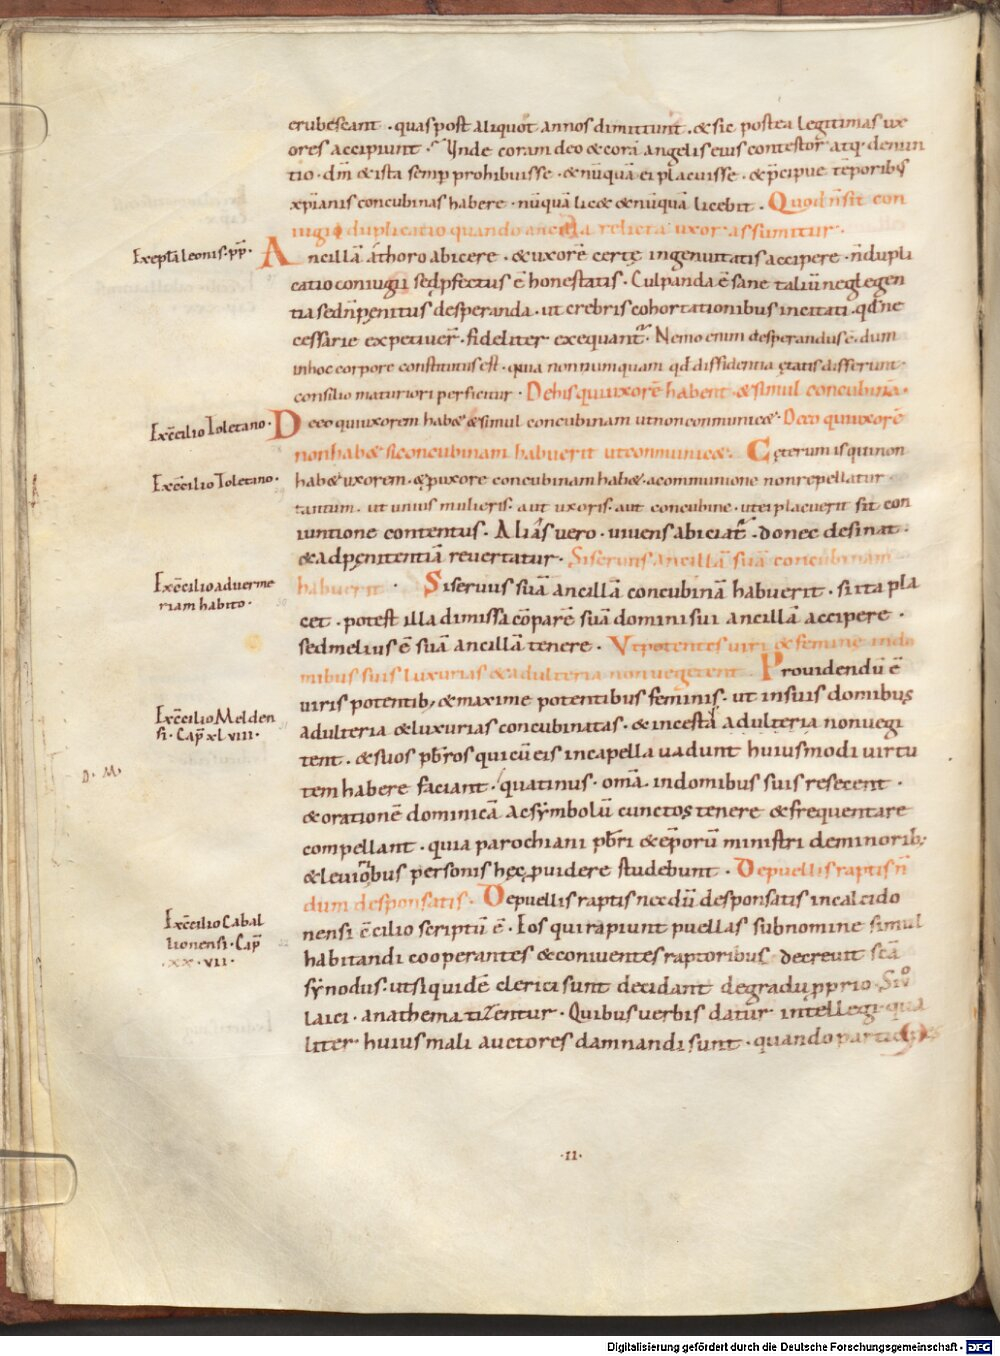 erubescant · quas post aliquot annos dimittunt · & sic postea legitimas ux
ores accipiunt · Unde coram deo & corā angelis eius contestor atq; denun
tio · dm̄ & ista semp prohibuisse · & nūquā ei placuisse · & p̄cipue tēporibꝫ
xp̄ianis concubinas habere · nūquā lic& & nūquā licebit · Quod n̄ sit con
iugii duplicatio quando ancilla relicta uxor assumitur ·
Ex ep̄tā leonis · pp̄ ·
Ancillā a thoro abicere · & uxorē certę ingenuitatis accipere · n̄ dupli
catio coniugii sed pfectus ē honestatis · Culpanda ē sane taliū neglegen
tia sed n̄ pęnitus desperanda · ut crebris cohortationibus incitati · qđ ne
cessarie expetiuer̄ · fideliter exequant̄ · Nemo enim desperandus ē · dum
in hoc corpore constitutus est · quia nonnumquam qđ diffidentia ętatis differunt ·
consilio maturiori perficitur · De his qui uxorē habent & simul concubinā ·
Ex c̄cilio Toletano ·
De eo qui uxorem hab& & simul concubinam ut non communic& · De eo qui uxorē
non hab& si concubinam habuerit ut communic& · Cęterum is qui non
Ex c̄cilio Toletano ·
hab& uxorem · & p uxore concubinam hab& · a communione non repellatur ·
tantum · ut unius mulieris · aut uxoris · aut concubine · ut ei placuerit sit con
iunctione contentus · Alias vero · vivens abiciat̄ · donec desinat ·
& ad pęnitentiā revertatur · Si servus ancillā suā concubinam
Ex c̄cilio adverme
riam habito ·
habuerit · Si servus suā ancillā concubinā habuerit · si ita pla
cet · potest illa dimissa cōparē suā domini sui ancillā accipere ·
sed melius ē suā ancillā tenere · Ut potentes viri & feminę in do
mibus suis luxurias & adulteria non vegetent · Providendū ē
viris potentibꝫ · & maxime potentibus feminis · ut in suis domibus
Ex c̄cilio Melden
si · Cap̄ xl viii ·
adulteria & luxurias concubinatas · & incesta adulteria non vegi
tent · & suos pb̄ros qui cū eis in capella vadunt huiusmodi virtu
D. M.
tem habere faciant · quatinus · omā · in domibus suis resecent ·
& orationē dominicā ac symbolū cunctos tenere & frequentare
compellant · quia parochiani pb̄ri & ep̄orū ministri de minoribꝫ
& levioribus personis hęc p̱videre studebunt · De puellis raptis n̄
dum desponsatis · De puellis raptis necdū desponsatis in calcido
Ex c̄cilio Cabal
lionensi · Cap̄
· xx · vii ·
nensi c̄cilio scriptū ē · Eos qui rapiunt puellas sub nomine simul
habitandi cooperantes & coniventes raptoribus decrevit sc̄ā
synodus · ut siquidē clerici sunt decidant de gradu p̱prio · Si v̊
laici · anathematizentur · Quibus verbis datur intellegi qua
liter huius mali auctores damnandi sunt · quando participes
· II ·
Digitalisierung gefördert durch die Deutsche Forschungsgemeinschaft - DFG